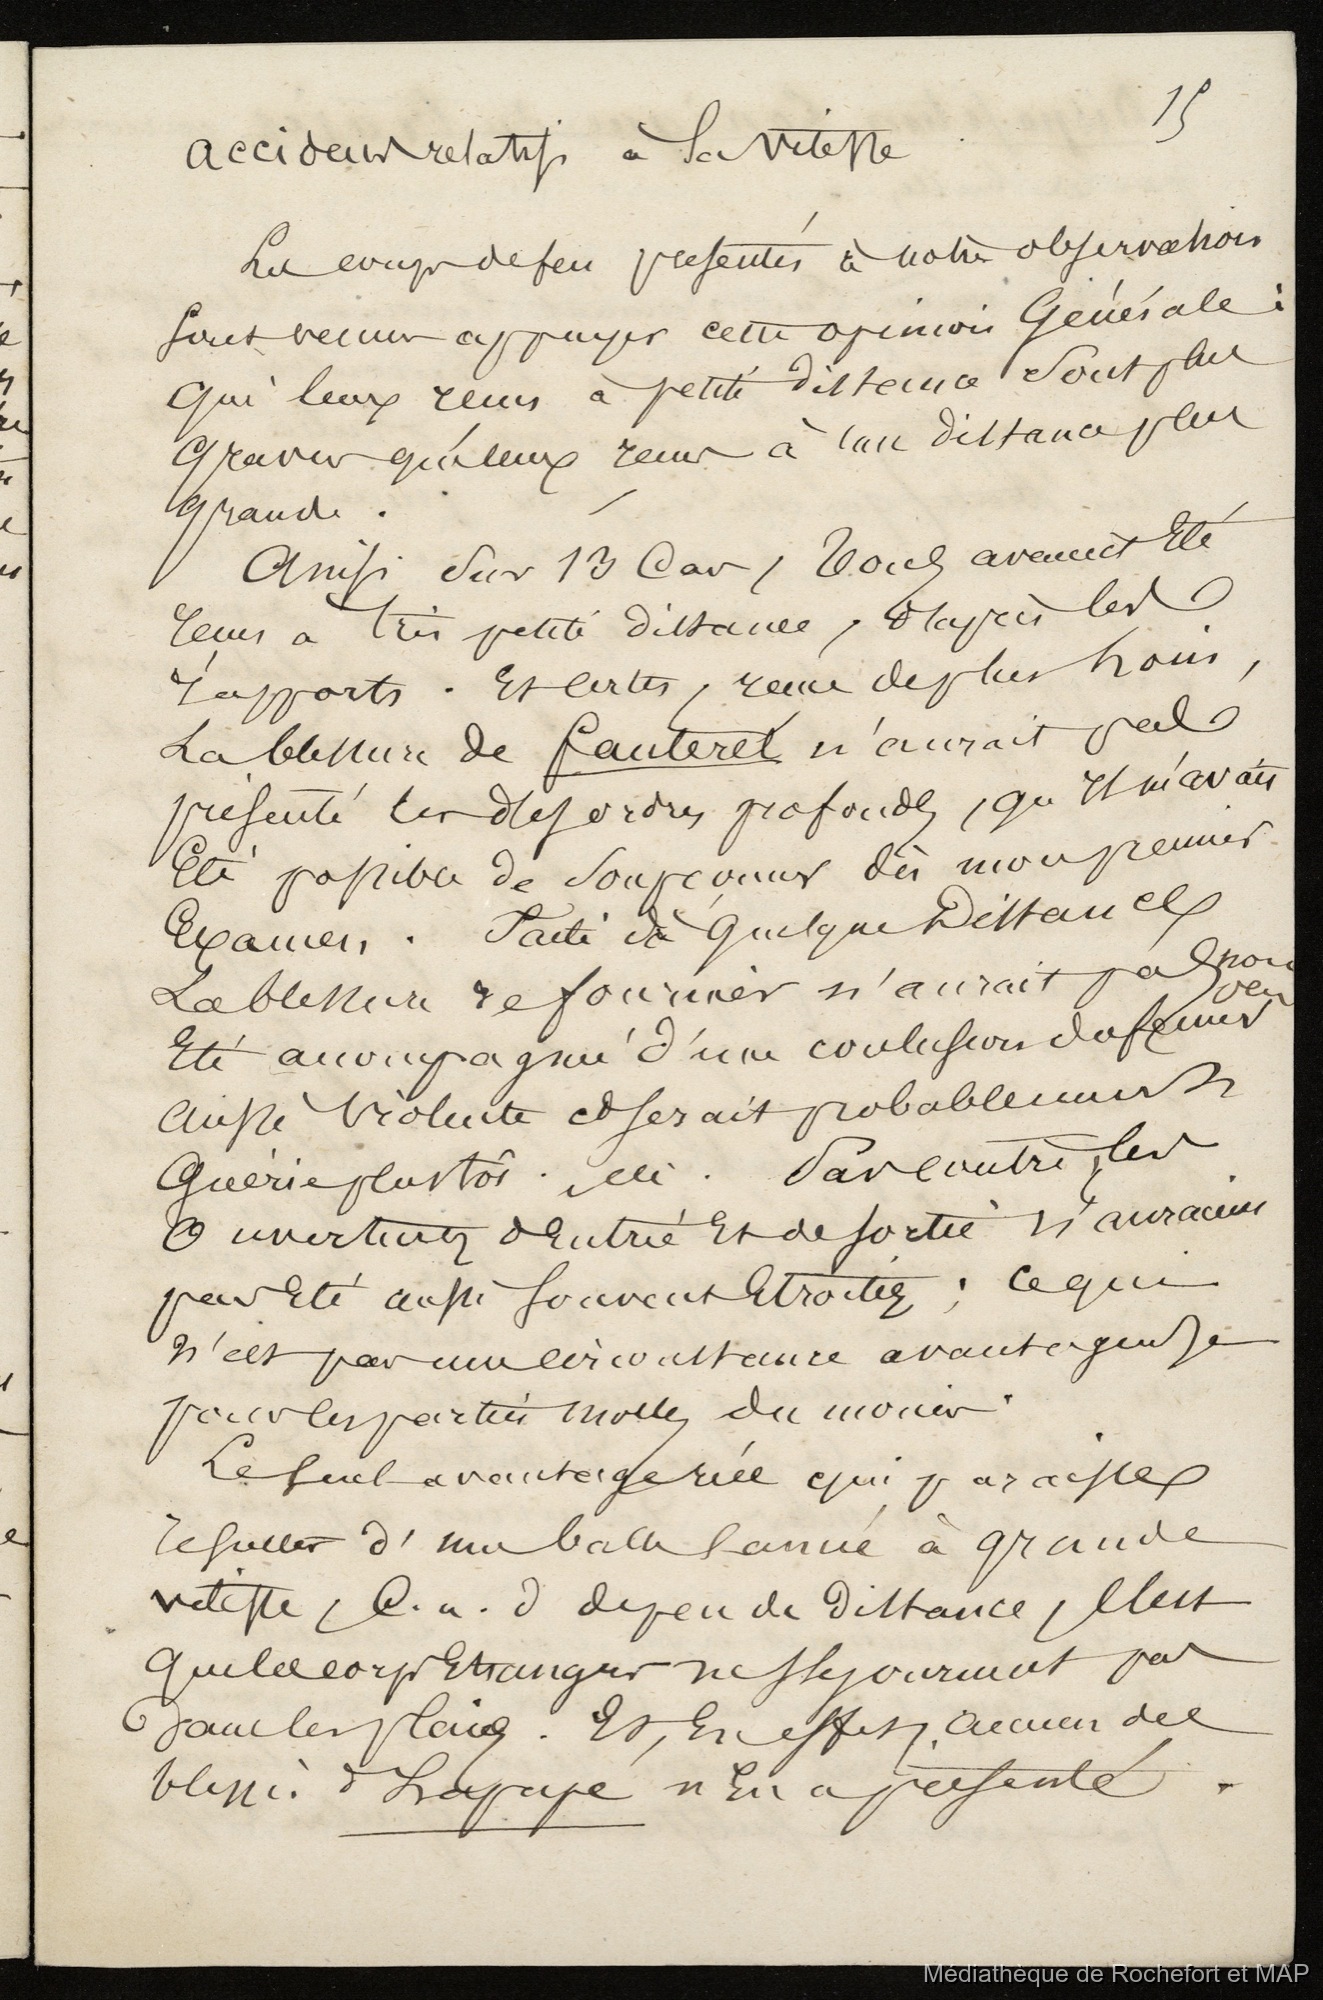 15
accidents relatifs à la vitesse
Les coups de feu présentés à notre observation
sont venus appuyer cette opinion Générale :
que ceux reçus à petite distance sont plus
graves que ceux reçus à une distance plus
grande .
Ainsi sur 13 Cas , tous avaient Eté
reçus à très petite distance , d'après les
rapports . Et certes , reçue de plus loin ,
La blessure de Cauteret n'aurait pas
présenté les désordres profonds , qu'il m'avait
Eté possible de soupçonner dès mon premier
Examen . Faite à quelque Distance
La blessure de fournier n'aurait pas non
Eté accompagnée d'une contusion du fémur
Aussi Violente et serait probablement
Guérie plus tôt . Par contre , les
Ouvertures d'Entrée Et de sortie n'auraient
pas Eté aussi souvent Etroites ; ce qui
n'est pas une circonstance avantageuse
pour les parties molles du moins .
Le seul avantage réel qui paraisse
résulter d'une balle lancée à grande
vitesse , C. a. d de peu de distance , C'est
que les corps Etrangers ne séjournent pas
dans les plaies . Et , En effet , aucun des
blessés n'En a présenté .
Médiathèque de Rochefort et MAP